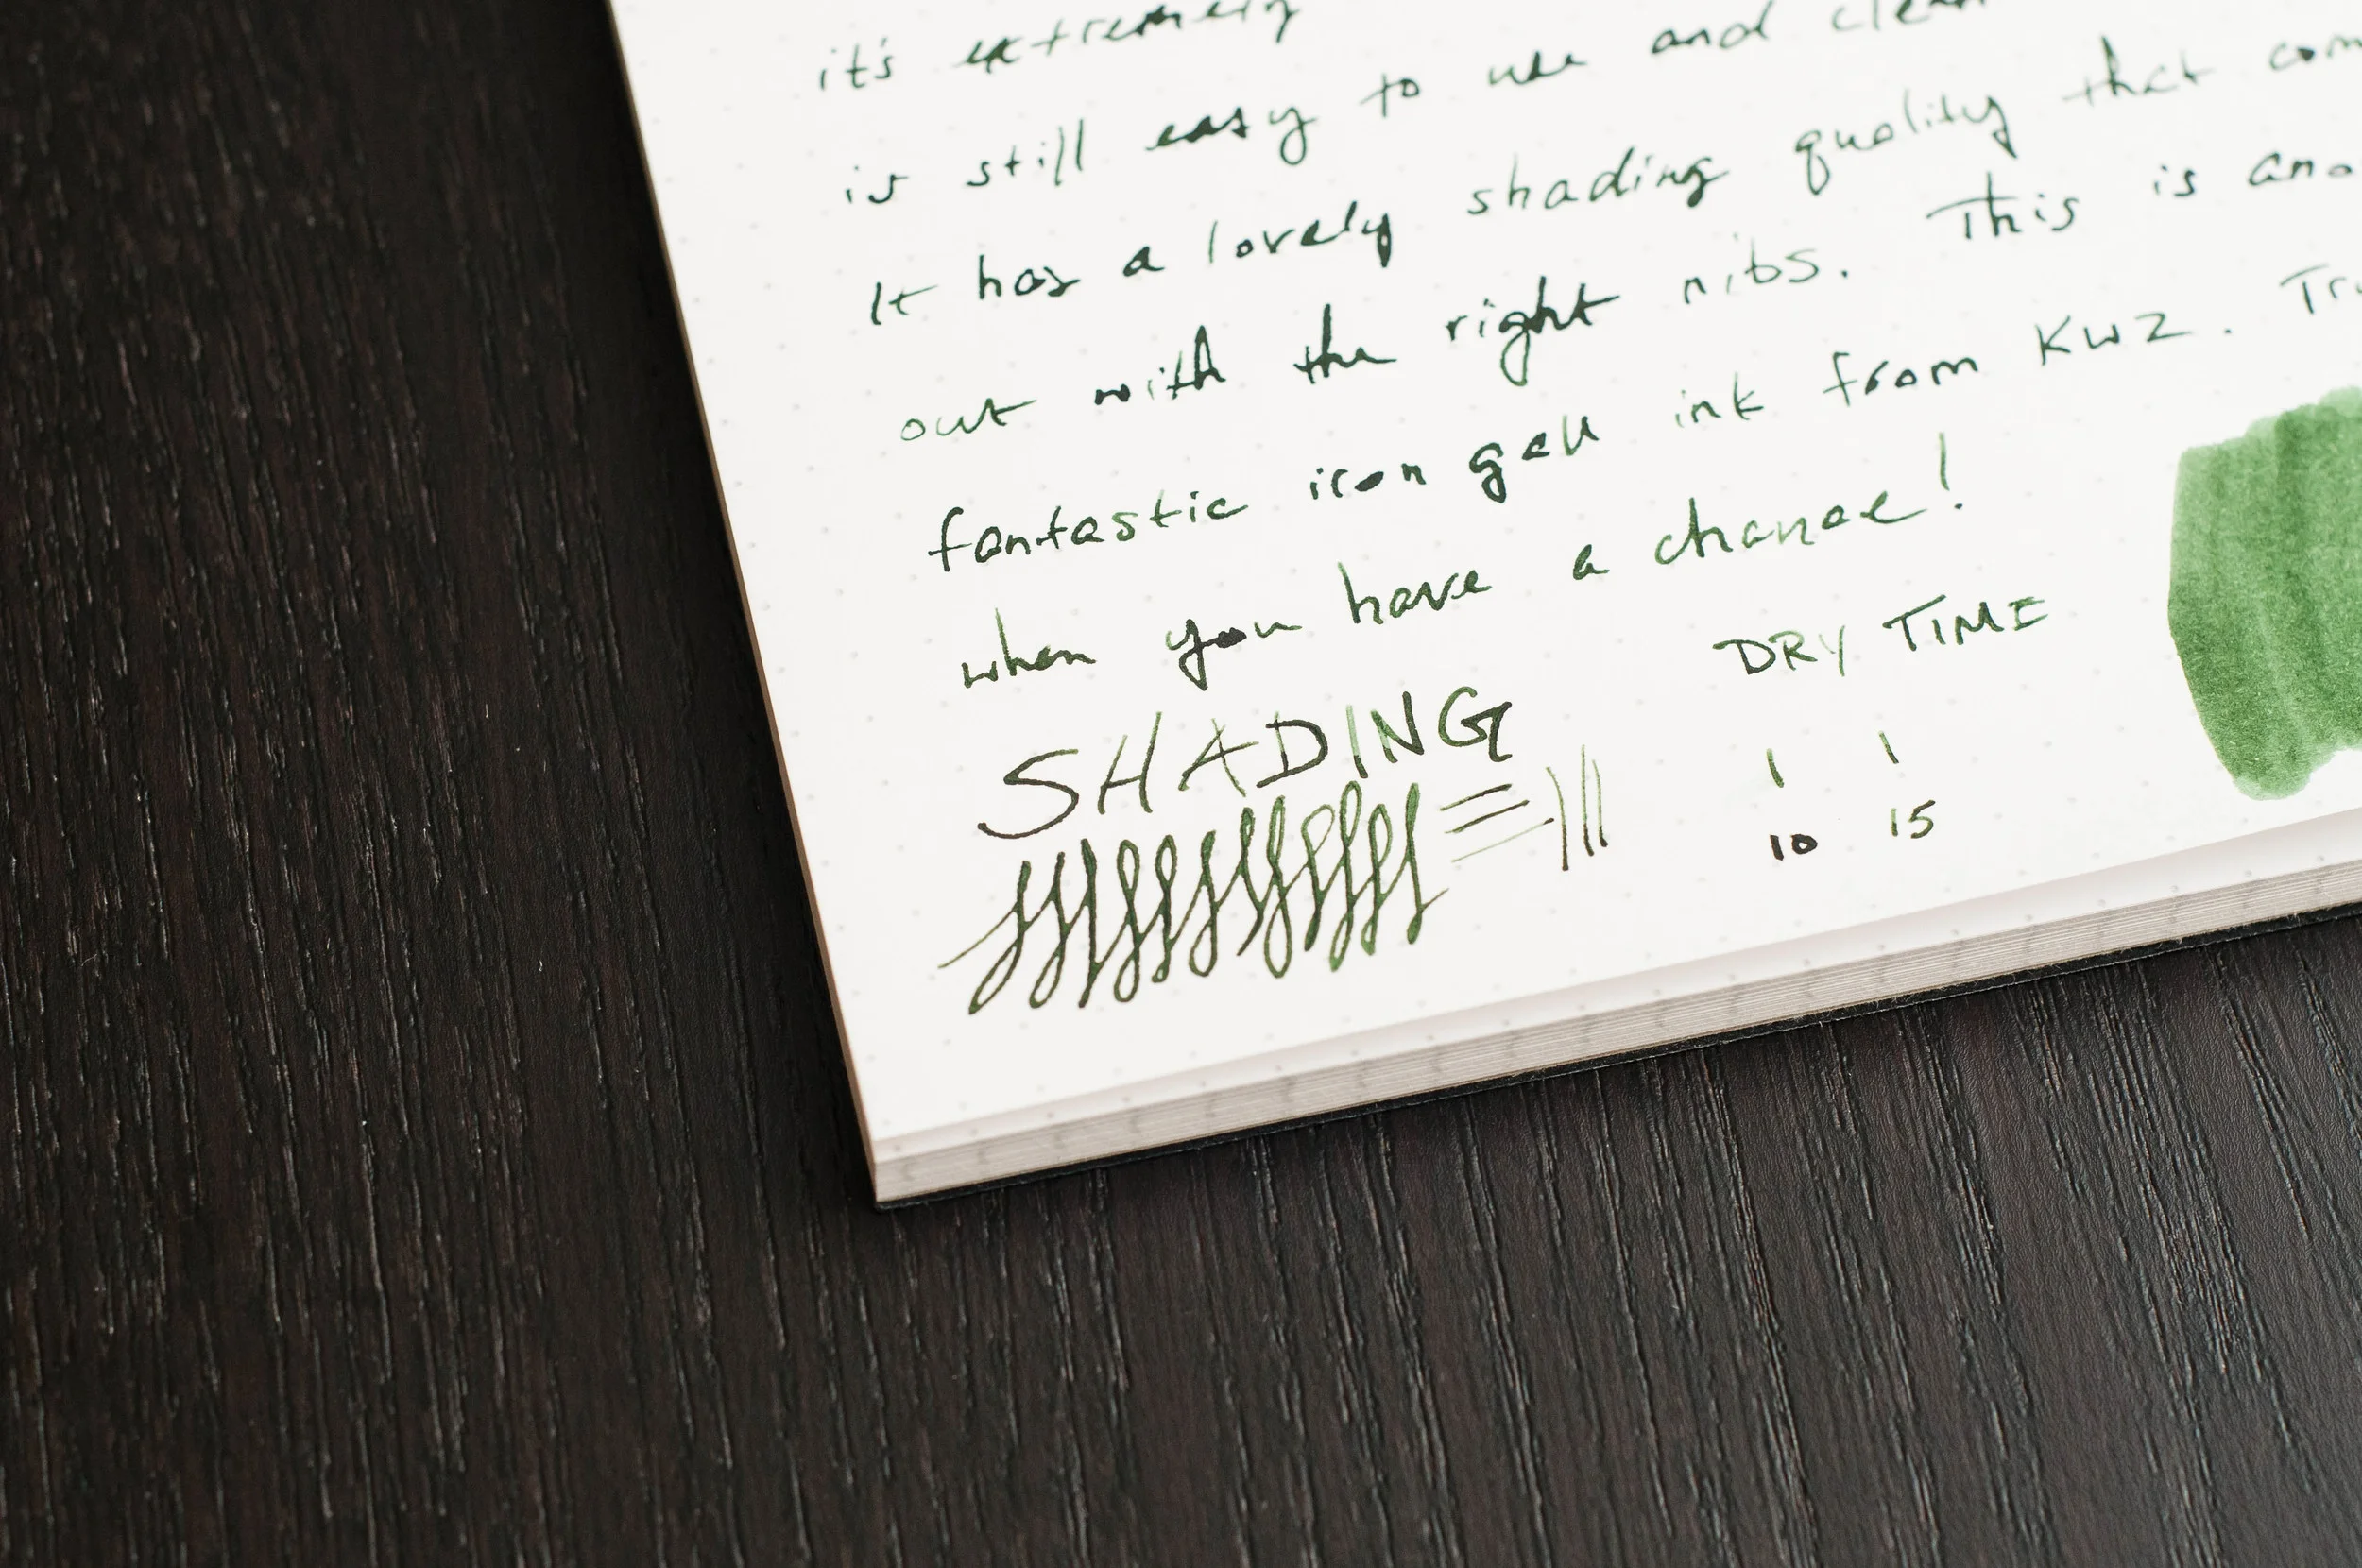 it's extremely
is still easy to use and clean
It has a lovely shading quality that com
out with the right nibs. This is ano
fantastic iron gall ink from KWZ. Try
when you have a chance!
SHADING DRY TIME
10 15